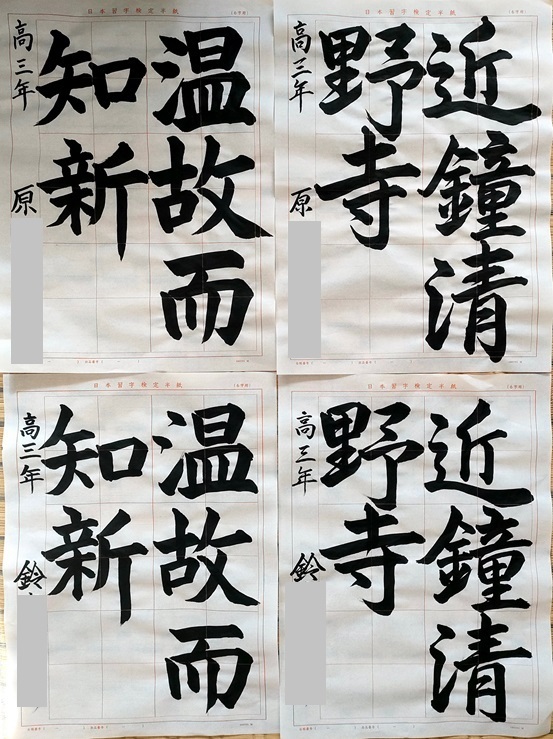 日本習字検定手紙
温故而
知新
高三年 原
日本習字検定手紙
近鐘清
野寺
高三年 原
日本習字検定手紙
温故而
知新
高三年 鈴
日本習字検定手紙
近鐘清
野寺
高三年 鈴